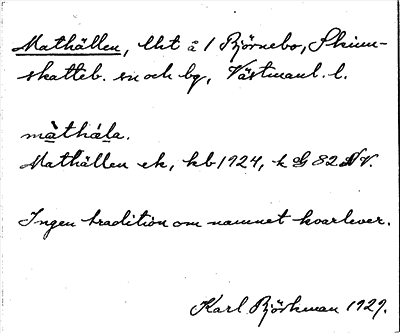 Mathällen, lht å 1 Björnebo, Skinn-
skatteb. sn och bg, Västmanl. l.
màthála.
Mathällen ek, kb 1924, k G 82 NV.
Ingen tradition om namnet kvarlever.
Karl Björkman 1929.